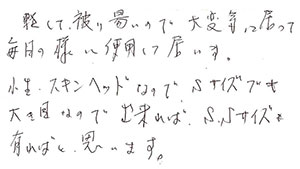 軽くて、被り易いので大変気に居って
毎日の様に使用して居います。
小生、スキンヘッドなので、Sサイズでも
大き目なので出来れば、S.Sサイズも
有ればと思います。